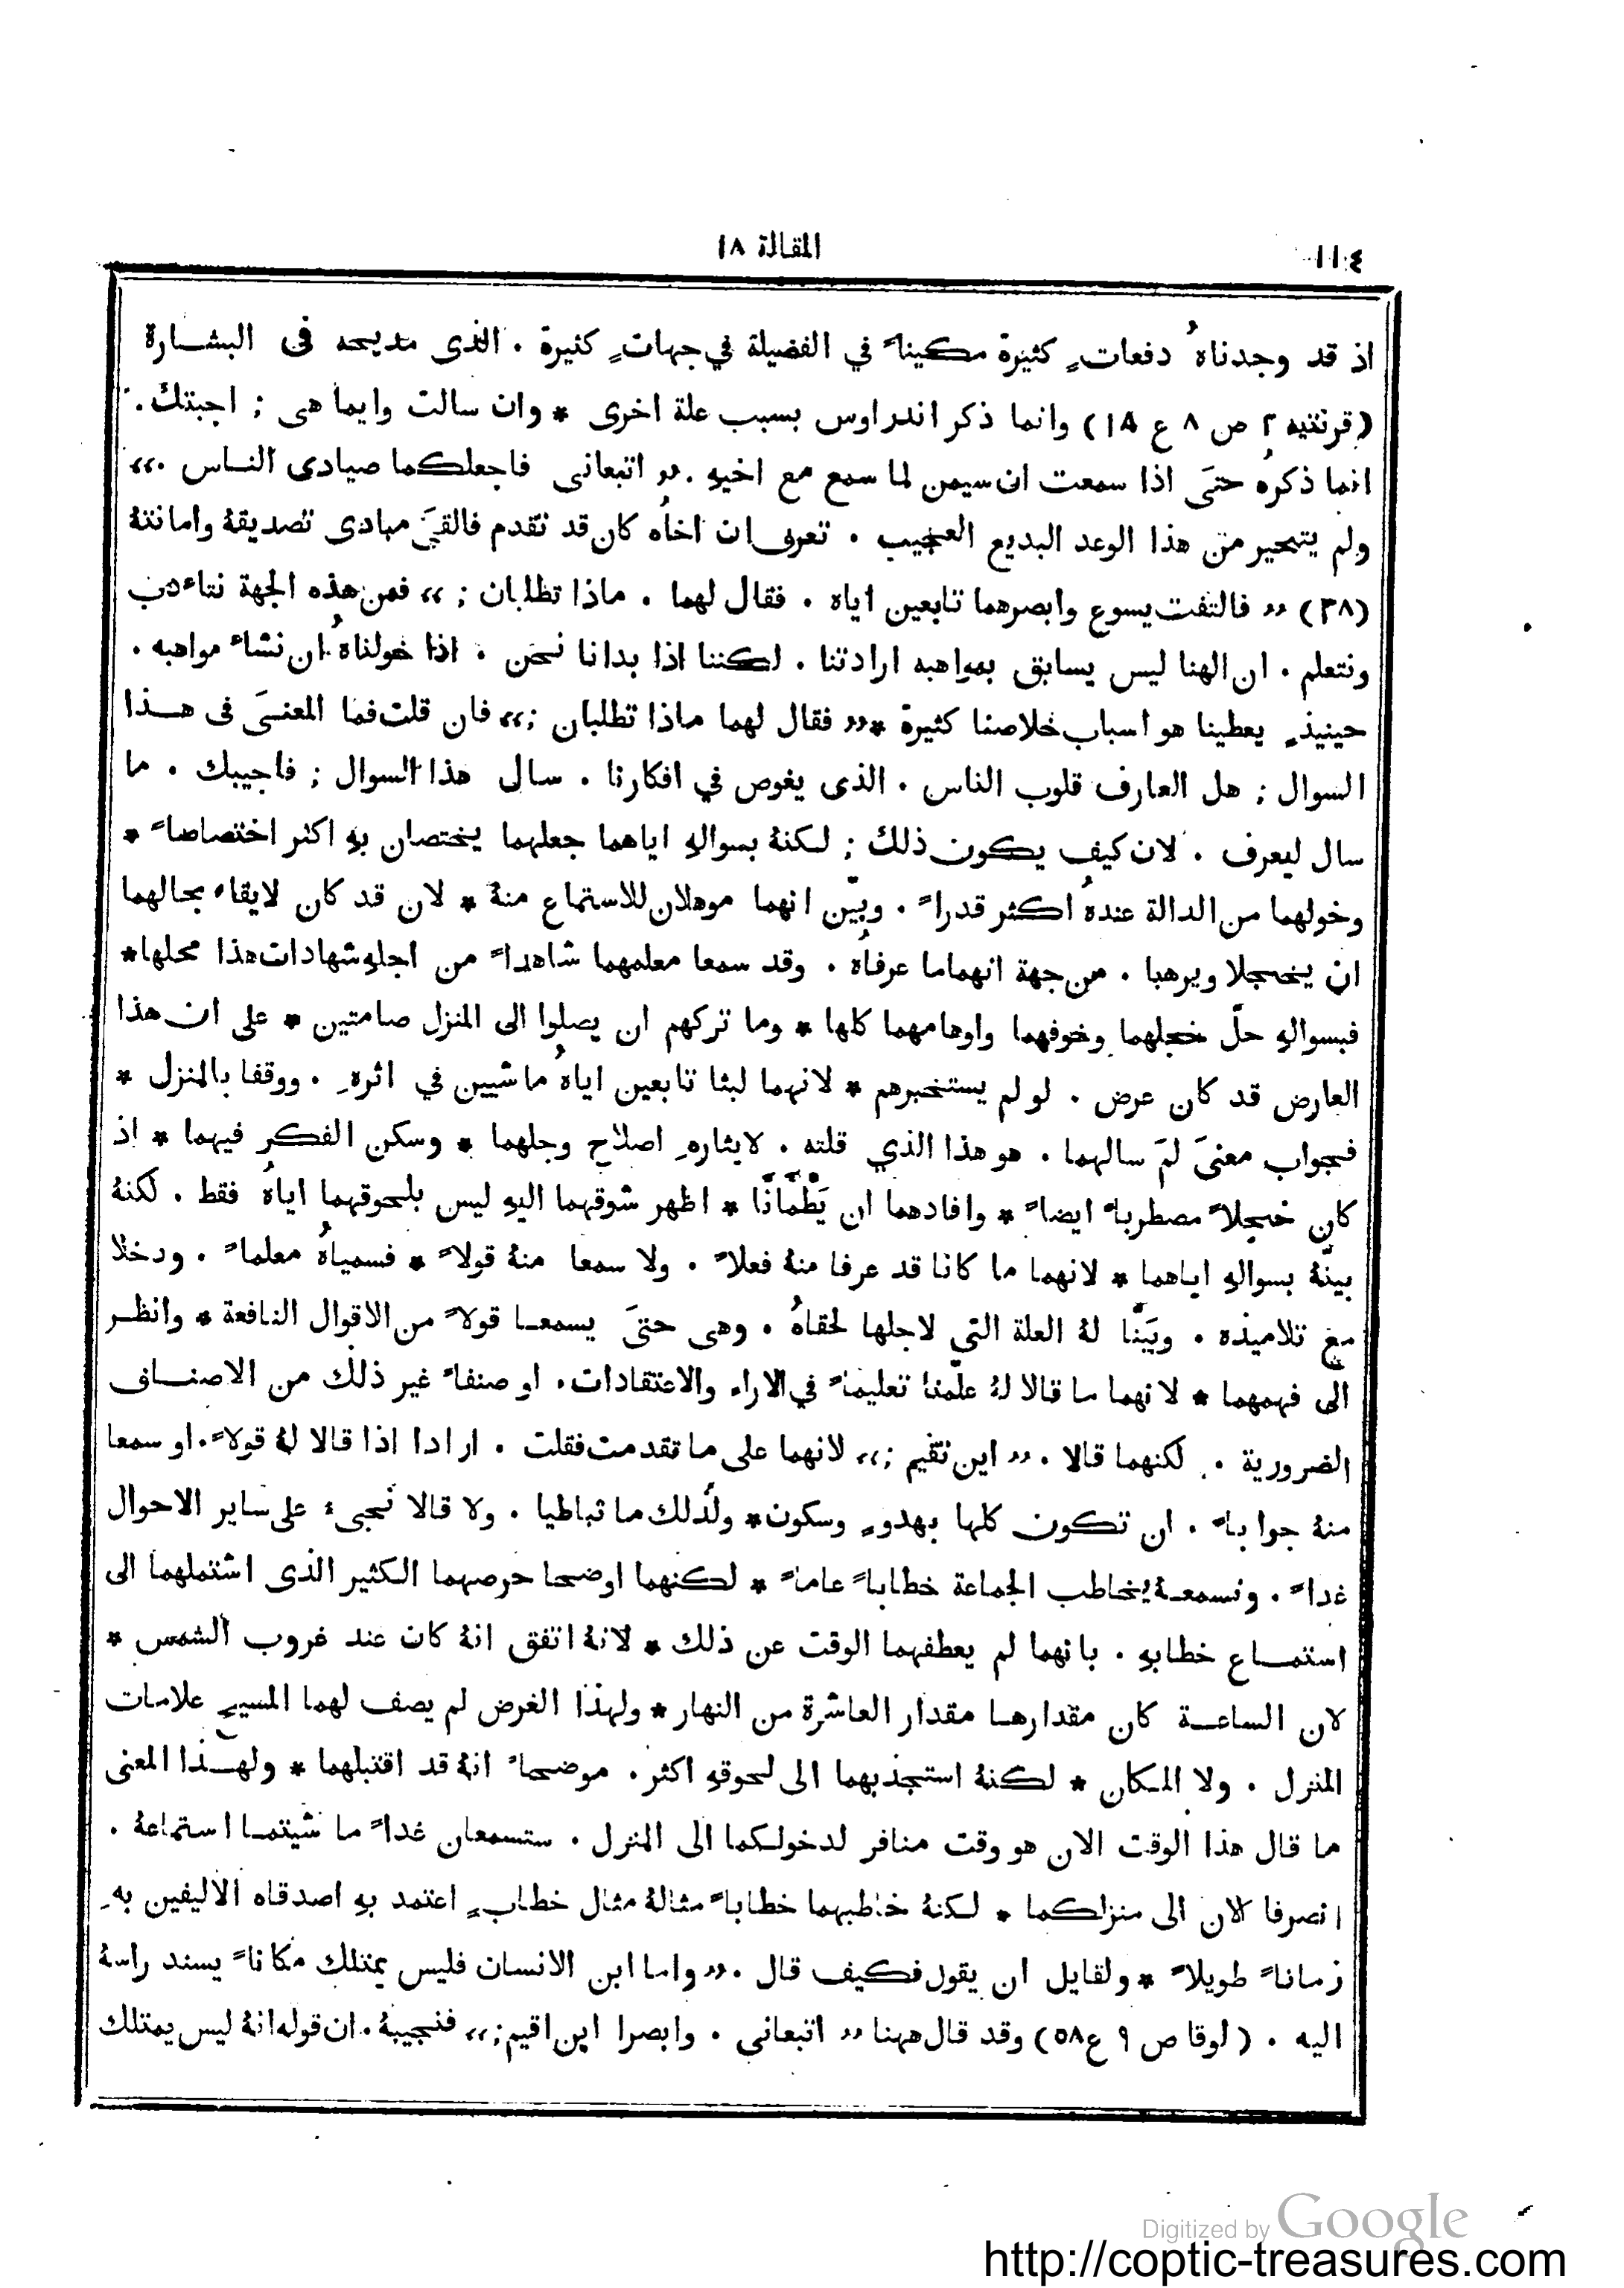 ١١٤
المقالة ١٨
اذ قد وجدناهُ دفعاتٍ كثيرة مكيناً في الفضيلة في جهاتٍ كثيرة . الذى مديحه فى البشارة
(قرنتيه ٢ ص ٨ ع ١٨) وانما ذكر اندراوس بسبب علة اخرى * وان سالت وايما هى ; اجبتك .
انما ذكرهُ حتىَ اذا سمعت ان سيمن لما سمع مع اخيهِ . ,, اتبعانى فاجعلكما صيادى الناس . ،،
ولم يتحير من هذا الوعد البديع العجيب . تعرف ان اخاهُ كان قد تقدم فالقىَ مبادى تصديقهُ وامانتهُ
(٣٨) ,, فالتفت يسوع وابصرهما تابعين اياه . فقال لهما . ماذا تطلبان ; ،، فمن هذه الجهة نتاءدب
ونتعلم . ان الهنا ليس يسابق بمواهبه ارادتنا . لكننا اذا بدانا نحن . اذا خولناهُ ان نشاء مواهبه .
حينيذٍ يعطينا هو اسباب خلاصنا كثيرة * ,, فقال لهما ماذا تطلبان ; ،، فان قلت فما المعنىَ فى هذا
السوال ; هل العارف قلوب الناس . الذى يغوص في افكارنا . سال هذا السوال ; فاجيبك . ما
سال ليعرف . لان كيف يكون ذلك ; لكنهُ بسوالهِ اياهما جعلهما يختصان بهِ اكثر اختصاصاً *
وخولهما من الدالة عندهُ اكثر قدراً . وبيّن انهما موهلان للاستماع منهُ * لان قد كان لايقاء بحالهما
ان يخجلا ويرهبا . من جهة انهما ما عرفاهُ . وقد سمعا معلمهما شاهداً من اجلهِ شهادات هذا محلها *
فبسوالهِ حلّ خجلهما وخوفهما واوهامهما كلها * وما تركهم ان يصلوا الى المنزل صامتين * على ان هذا
العارض قد كان عرض . لو لم يستخبرهم * لانهما لبثا تابعين اياهُ ماشيين في اثرهِ . ووقفا بالمنزل *
فجواب معنىَ لمَ سالهما . هو هذا الذي قلته . لايثارهِ اصلاح وجلهما * وسكن الفكر فيهما * اذ
كان خجلاً مضطرباً ايضاً * وافادهما ان يَطْمَانَّا * اظهر شوقهما اليهِ ليس بلحوقهما اياهُ فقط . لكنهُ
بينهُ بسوالهِ اياهما * لانهما ما كانا قد عرفا منهُ فعلاً . ولا سمعا منهُ قولاً * فسمياهُ معلماً . ودخلا
مع تلاميذه . وبيَّنا لهُ العلة التي لاجلها لحقاهُ . وهى حتىَ يسمعا قولاً من الاقوال النافعة * وانظر
الى فهمهما * لانهما ما قالا لهُ علّمنا تعليماً في الاراء والاعتقادات . او صنفاً غير ذلك من الاصناف
الضرورية . لكنهما قالا . ,, اين تقيم ; ،، لانهما على ما تقدمت فقلت . ارادا اذا قالا لهُ قولاً . او سمعا
منهُ جواباً . ان تكون كلها بهدوٍ وسكون * ولذلك ما تباطيا . ولا قالا نجىء على ساير الاحوال
غداً . ونسمعهُ يخاطب الجماعة خطاباً عاماً * لكنهما اوضحا حرصهما الكثير الذى اشتملهما الى
استماع خطابهِ . بانهما لم يعطفهما الوقت عن ذلك * لانهُ اتفق انهُ كان عند غروب الشمس *
لان الساعة كان مقدارها مقدار العاشرة من النهار * ولهذا الغرض لم يصف لهما المسيح علامات
المنزل . ولا المكان * لكنهُ استجذبهما الى لحوقهِ اكثر . موضحاً انهُ قد اقتبلهما * ولهذا المعنى
ما قال هذا الوقت الان هو وقت منافر لدخولكما الى المنزل . ستسمعان غداً ما شيتما استماعهُ .
انصرفا الان الى منزلكما * لكنهُ خاطبهما خطاباً مثالهُ مثال خطابٍ اعتمد بهِ اصدقاه الاليفين بهِ
زماناً طويلاً * ولقايل ان يقول فكيف قال . ,, واما ابن الانسان فليس يمتلك مكاناً يسند راسهُ
اليه . (لوقا ص ٩ ع ٥٨) وقد قال ههنا ,, اتبعانى . وابصرا اين اقيم ; ،، فنجيبهُ . ان قوله انهُ ليس يمتلك
Digitized by Google
http://coptic-treasures.com